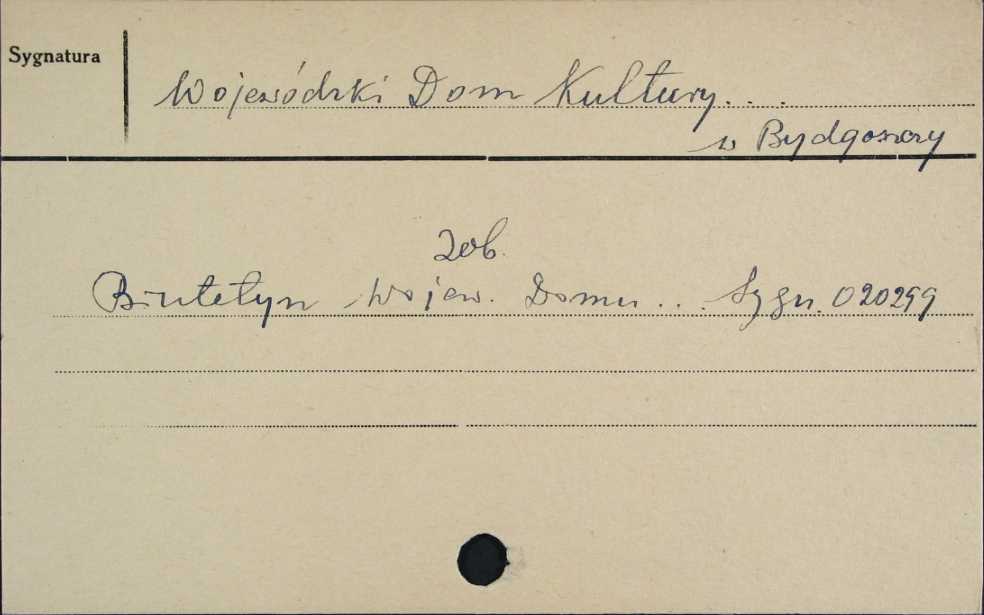 Sygnatura
Wojewódzki Dom Kultury...
w Bydgoszczy
Zob.
Biuletyn Wojew. Domu... Sygn. 020299